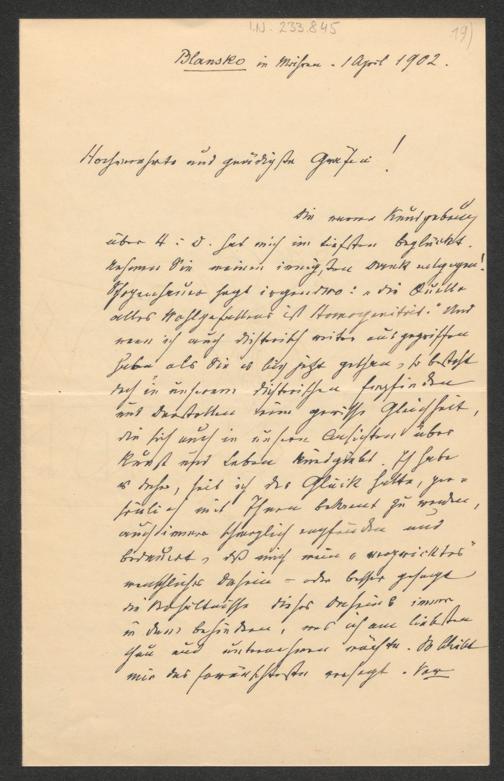 I.N. 233.845
19)
Blansko in Mähren. 1 April 1902.
Hochverehrte und gnädigste Gräfin!
Die warme Kundgebung
über H. : D. hat mich im tiefsten beglückt.
Nehmen Sie meinen innigsten Dank entgegen!
Schopenhauer sagt irgendwo: „die Quelle
alles Wohlgefallens ist Homogenität." Und
wenn ich auch dichterisch weiter ausgegriffen
habe, als Sie es bis jetzt gethan, so besteht
doch in unserem dichterischen Empfinden
und Darstellen eine gewisse Gleichheit,
die sich auch in unsern Ansichten über
Kunst und Leben kundgiebt. Ich habe
es daher, seit ich das Glück hatte, per-
sönlich mit Ihnen bekannt zu werden,
auch immer schmerzlich empfunden und
bedauert, daß mich mein „verzwicktes"
menschliches Dasein – oder besser gesagt
die Verhältnisse dieses Daseins immer
in dem behindern, was ich am liebsten
thun und unternehmen möchte. So bleibt
mir das Erwünschteste versagt. Vor